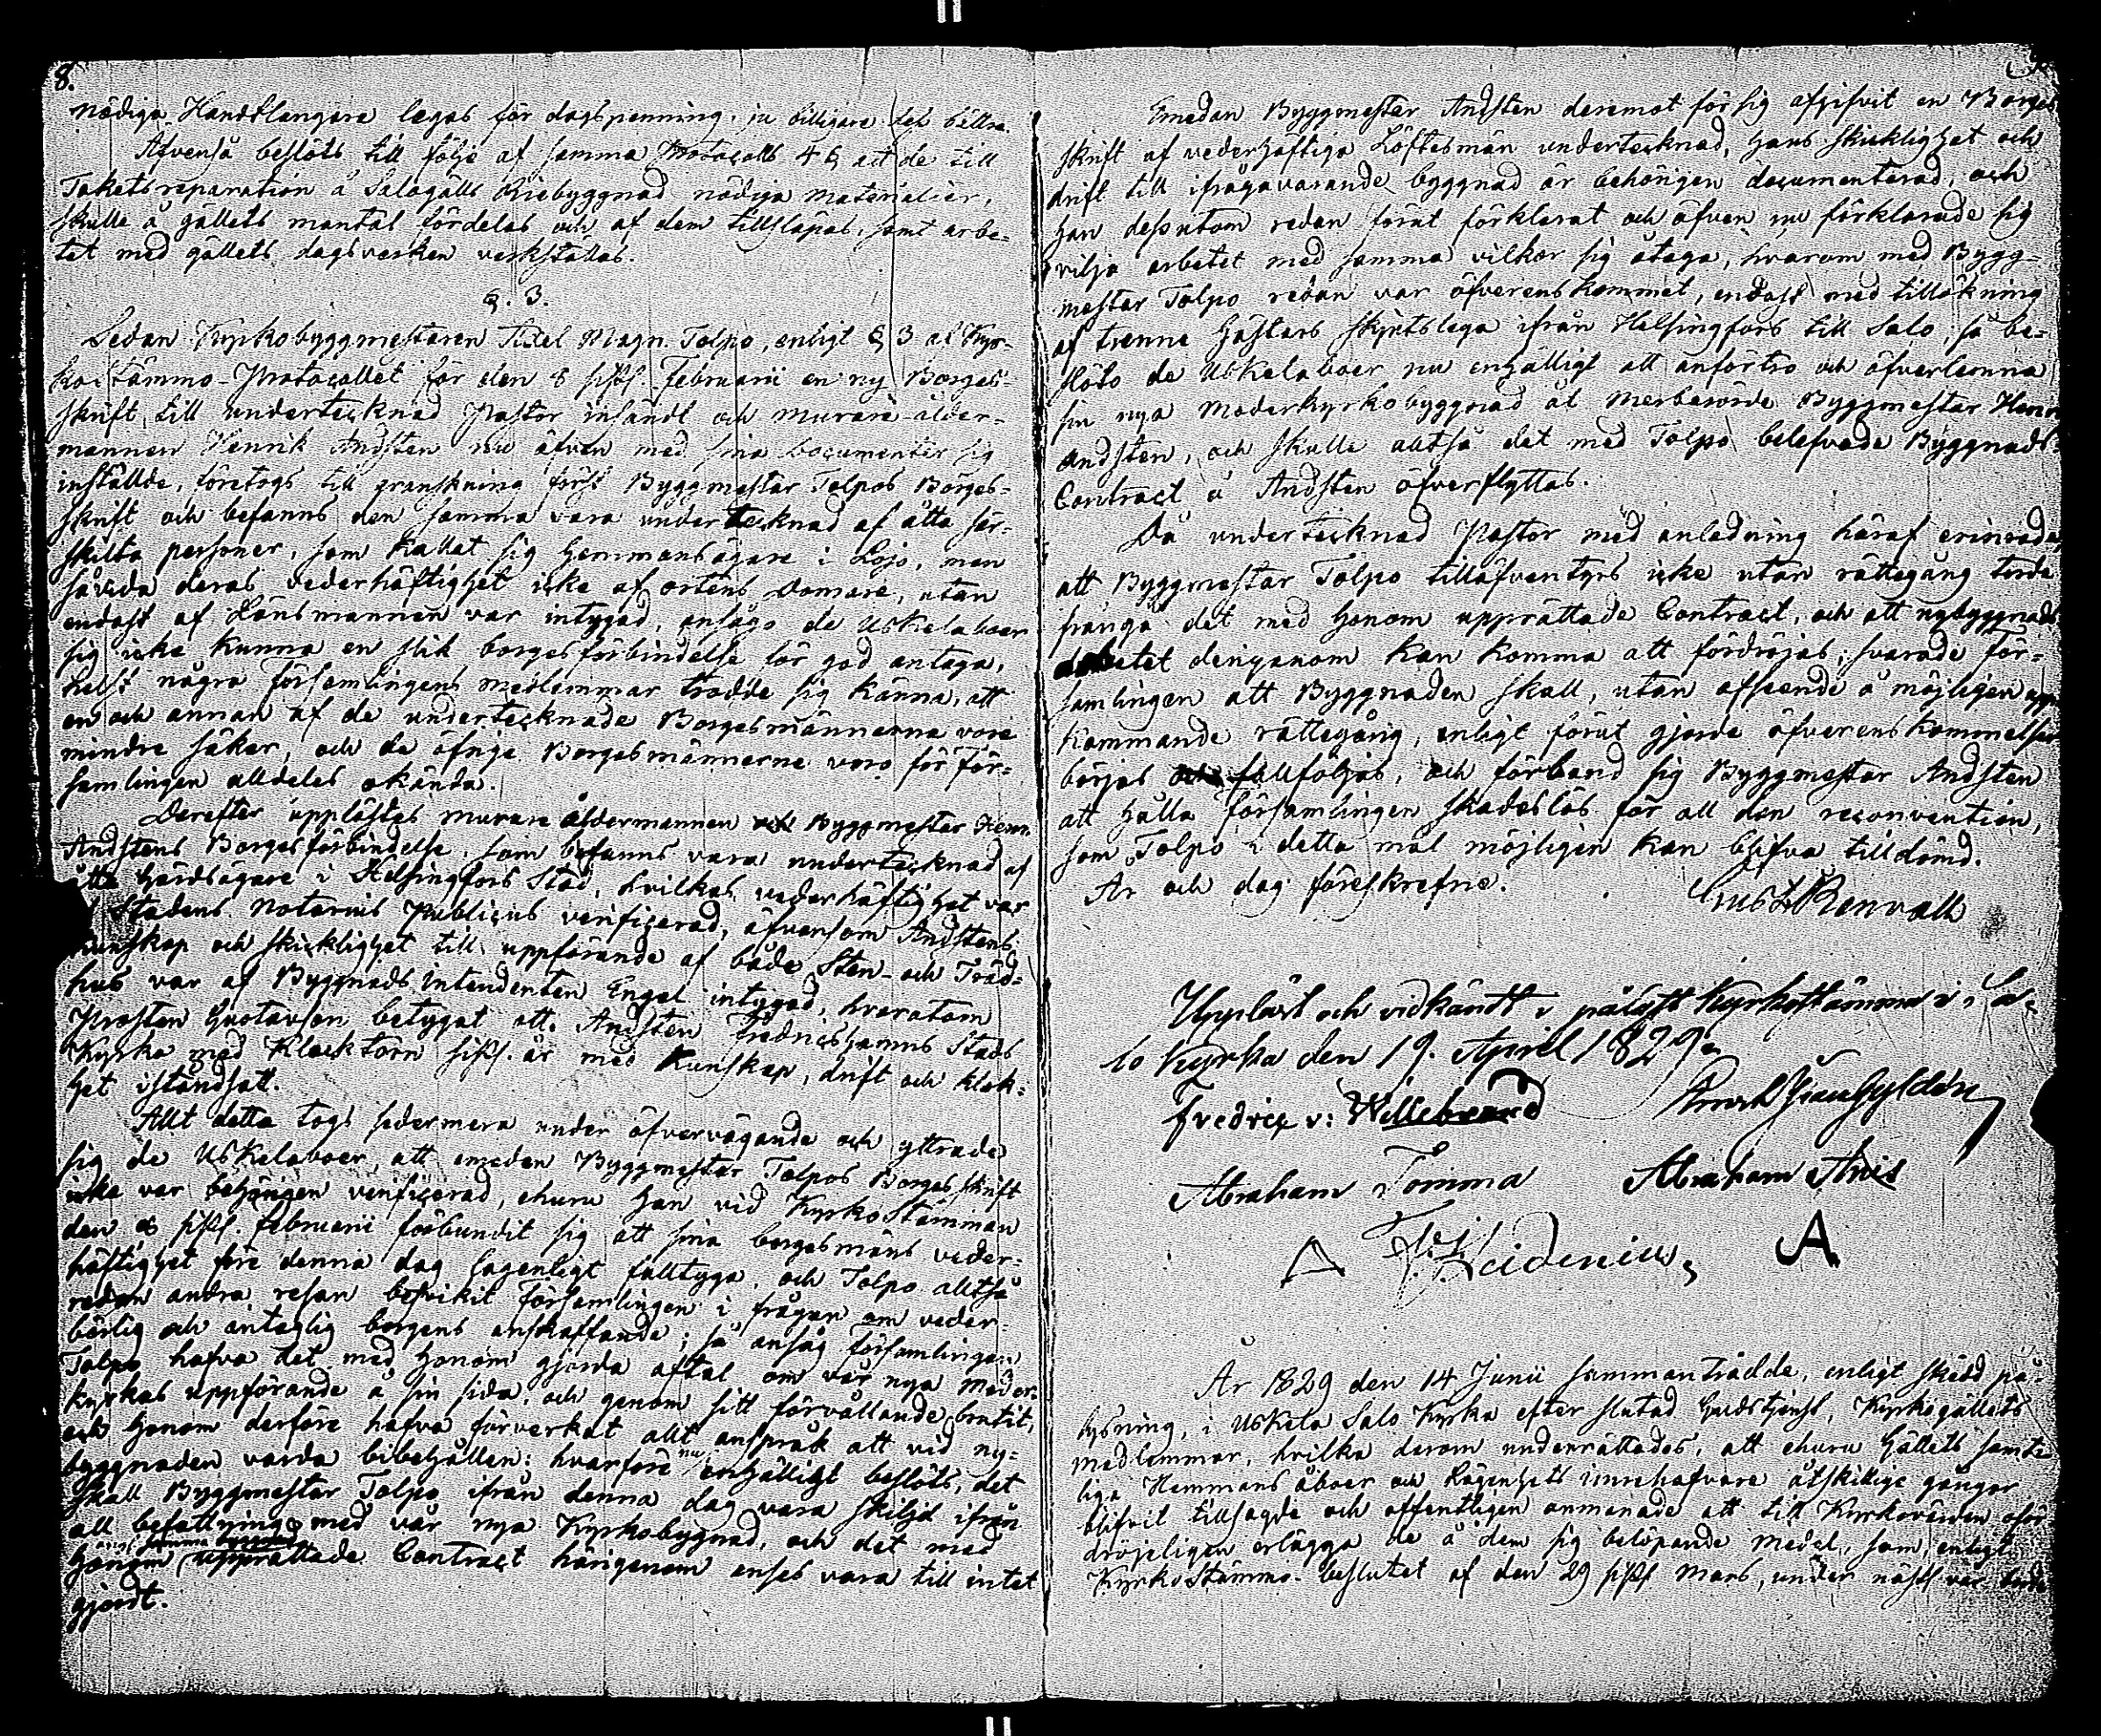 8.
nödiga Handtlangare legas för dagspenning, ju billigare del bättre.
Äfvenså beslöts till följe af samma Protocolls 4 § att de till
Taketsreparation å Salogälls Kiebyggnad nödiga materialier,
skulle å gällets mantal fördelas och af dem tillsläpas, samt arbe-
tet med gällets dagsverken verkställas.
§. 3.
Sedan Kyrkobyggmästaren Titel Magn. Tolpo, enligt § 3 af Kyr-
kostämmo-Protocollet för den 8 sistl. Februarii en ny Borges-
skrift till undertecknad Pastor insändt och murare-ålder-
mannen Henrik Andsten nu äfven med sina documenter sig
inställde, företogs till granskning först Byggmestar Tolpos Borges-
skrift och befanns den samma vara undertecknad af åtta sär-
skilta personer, som kallat sig Hemmansägare i Lojo, men
såvida deras vederhäftighet icke af ortens Domare, utan
endast af Länsmannen var intygad, ansågo de Uskelaboer
sig icke kunna en slik borgesförbindelse för god antaga,
helst några församlingens medlemmar trodde sig känna, att
en och annan af de undertecknade Borgesmännerna vore
mindre säker, och de öfrige Borgesmännerne voro för för-
samlingen alldeles okända.
Derefter upplästes murare åldermannen och Byggmestar Henr.
Andstens Borgesförbindelse, som befanns vara undertecknad af
åtta Gårdsägare i Helsingfors Stad, hvilkas vederhäftighet var
Stadens Notarius Publicus verificerad, äfvensom Andstens
kunskap och skicklighet till uppförande af både Sten- och Träd-
hus var af Byggnads intendenten Engel intygad, hvarutom
Prosten Gustavson betygat att Andsten Fredricshamns Stads
Kyrka med Klocktorn sistl. år med Kunskap, drift och klok-
het iståndsatt.
Allt detta togs sedermera under öfvervägande och yttrade
sig de Uskelaboer, att emedan Byggmestar Tolpos Borges skrift
icke var behörigen verificerad, ehuru han vid KyrkoStämman
den 8 sistl. Februarii förbundit sig att sina borgesmäns veder-
häftighet före denna dag lagenligt falltyga, och Tolpo alltså
redan andra resan besvikit Församlingen i frågan om veder-
börlig och antaglig borgens anskaffande; så ansåg församlingen
Tolpo hafva det med honom gjorda aftal om vår nya Moder-
kyrkas uppförande å sin sida, och genom sitt förvållande brutit,
och honom derföre hafva förverkat allt anspråk att vid ny-
byggnaden varda bibehållen: hvarföre nu enhälligt beslöts, det
skall Byggmestar Tolpo ifrån denna dag vara skiljd ifrån
all befattning med vår nya Kyrkobygnad, och det med
honom upprättade Contract härigenom anses vara till intet
gjordt.
Emedan Byggmestar Andsten deremot för sig afgifvit en Borges
skrift af vederhäftiga Löftesmän undertecknad, hans skicklighet och
drift till ifrågavarande byggnad är behörigen documenterad, och
han dessutom redan förut förklarat och äfven nu förklarade sig
vilja arbetet med samma vilkor sig åtaga, hvarom med Bygg-
mestar Tolpo redan var öfverenskommet, endast med tillökning
af trenne Hästars skjutslega ifrån Helsingfors till Salo; så be-
slöto de Uskelaboer nu enhälligt att anförtro och öfverlemna
sin nya Moderkyrkobyggnad åt merberörde Byggmestar Henr
Andsten, och skulle alltså det med Tolpo belefvade Byggnads-
Contract å Andsten öfverflyttas.
Då undertecknad Pastor med anledning häraf erinrade,
att Byggmestar Tolpo tilläfventyrs icke utan rättegång torde
frångå det med honom upprättade Contract, och att nybyggnads
arbetet derigenom kan komma att fördröjas; svarade För-
samlingen att Byggnaden skall, utan afseende å möjligen upp
kommande rättegång, enligt förut gjorde öfverenskommelser
börjas fullföljas, och förband sig Byggmestar Andsten
att hålla församlingen skadeslös för all den reconvention,
som Tolpo i detta mål möjligen kan blifva tilldömd.
År och dag föreskrefne.
Gust. Renvall
Uppläst och vidkändt i pålyst Kyrkostämma i Sa-
lo Kyrka den 19. April 1829.
Fredric v: Willebrand
Abraham Tomma Abraham Anis
Heidenius A
År 1829 den 14 Junii sammanträdde, enligt skedd på-
lysning, i Uskela Salo Kyrka efter slutad Gudstjenst, Kyrkogällets
medlemmar, hvilka derom underrättades, att ehuru Gällets samte
liga Hemmans åboer och Lägenhets innehafvare åtskillige gånger
blifvit tillsagde och offentligen anmanade att till Kyrkovärden oför
dröjeligen erlägga de å dem sig belöpande medel, som, enligt
KyrkoStämmo-beslutet af den 29 sistl. Mars, under näst